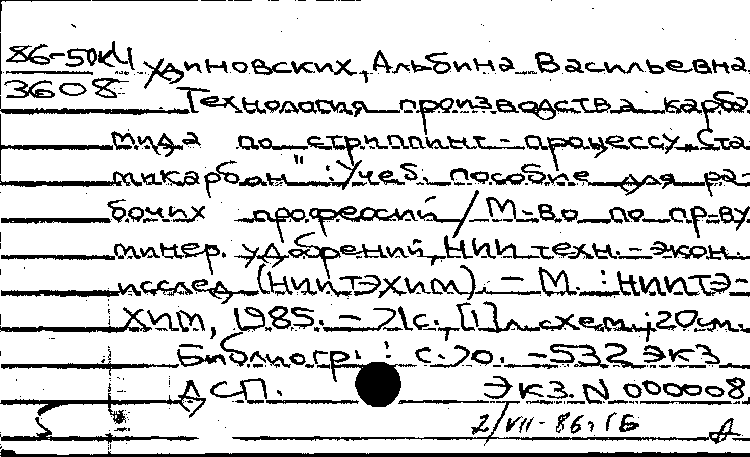 86-50кч Удиновских, Альбина Васильевна
3608 Технология производства карба
мида по стриппинг-процессу „Ста
микарбон" : Учеб. пособие для ра-
бочих профессий / М-во по пр-ву
минер. удобрений, НИИ техн.-экон.
исслед (НИИТЭХИМ). – М. : НИИТЭ-
ХИМ, 1985. – 71с., [1] л. схем.; 20см.
Библиогр. : с. 70. – 532 экз
ДСП. Экз. N 000008
2/VII-86г. ГБ